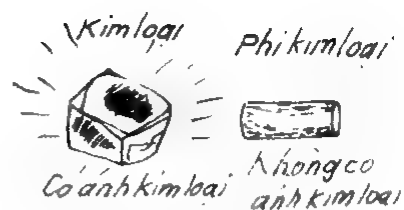 Kim loại
Phi kim loại
Có ánh kim loại
Không có
ánh kim loại